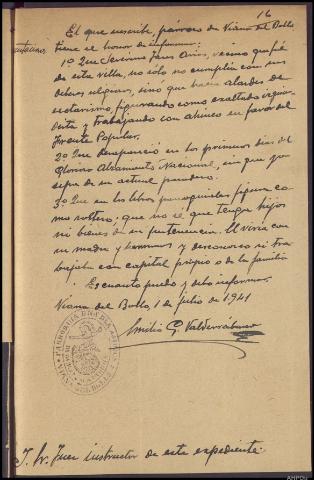 16
El que suscribe, párroco de Viana del Bollo
tiene el honor de informar:
1º Que Severino Janes Arias, vecino que fué
de esta villa, no solo no cumplía con sus
deberes religiosos, sino que hacía alardes de
sectarismo, figurando como exaltado izquier-
dista y trabajando con ahinco en favor del
Frente Popular.
2º Que desapareció en los primeros días del
Glorioso Alzamiento Nacional, sin que yo
sepa de su actual paradero.
3º Que en los libros parroquiales figura co-
mo soltero; que no sé, que tenga hijos
ni bienes de su pertenencia. El vivía con
su madre y hermanos y desconozco si tra-
bajaba con capital propio o de la familia
Es cuanto puedo y debo informar.
Viana del Bollo, 1 de julio de 1941
Emilio G. Valderrábano
Sr. Juez instructor de este expediente.
AHPOu